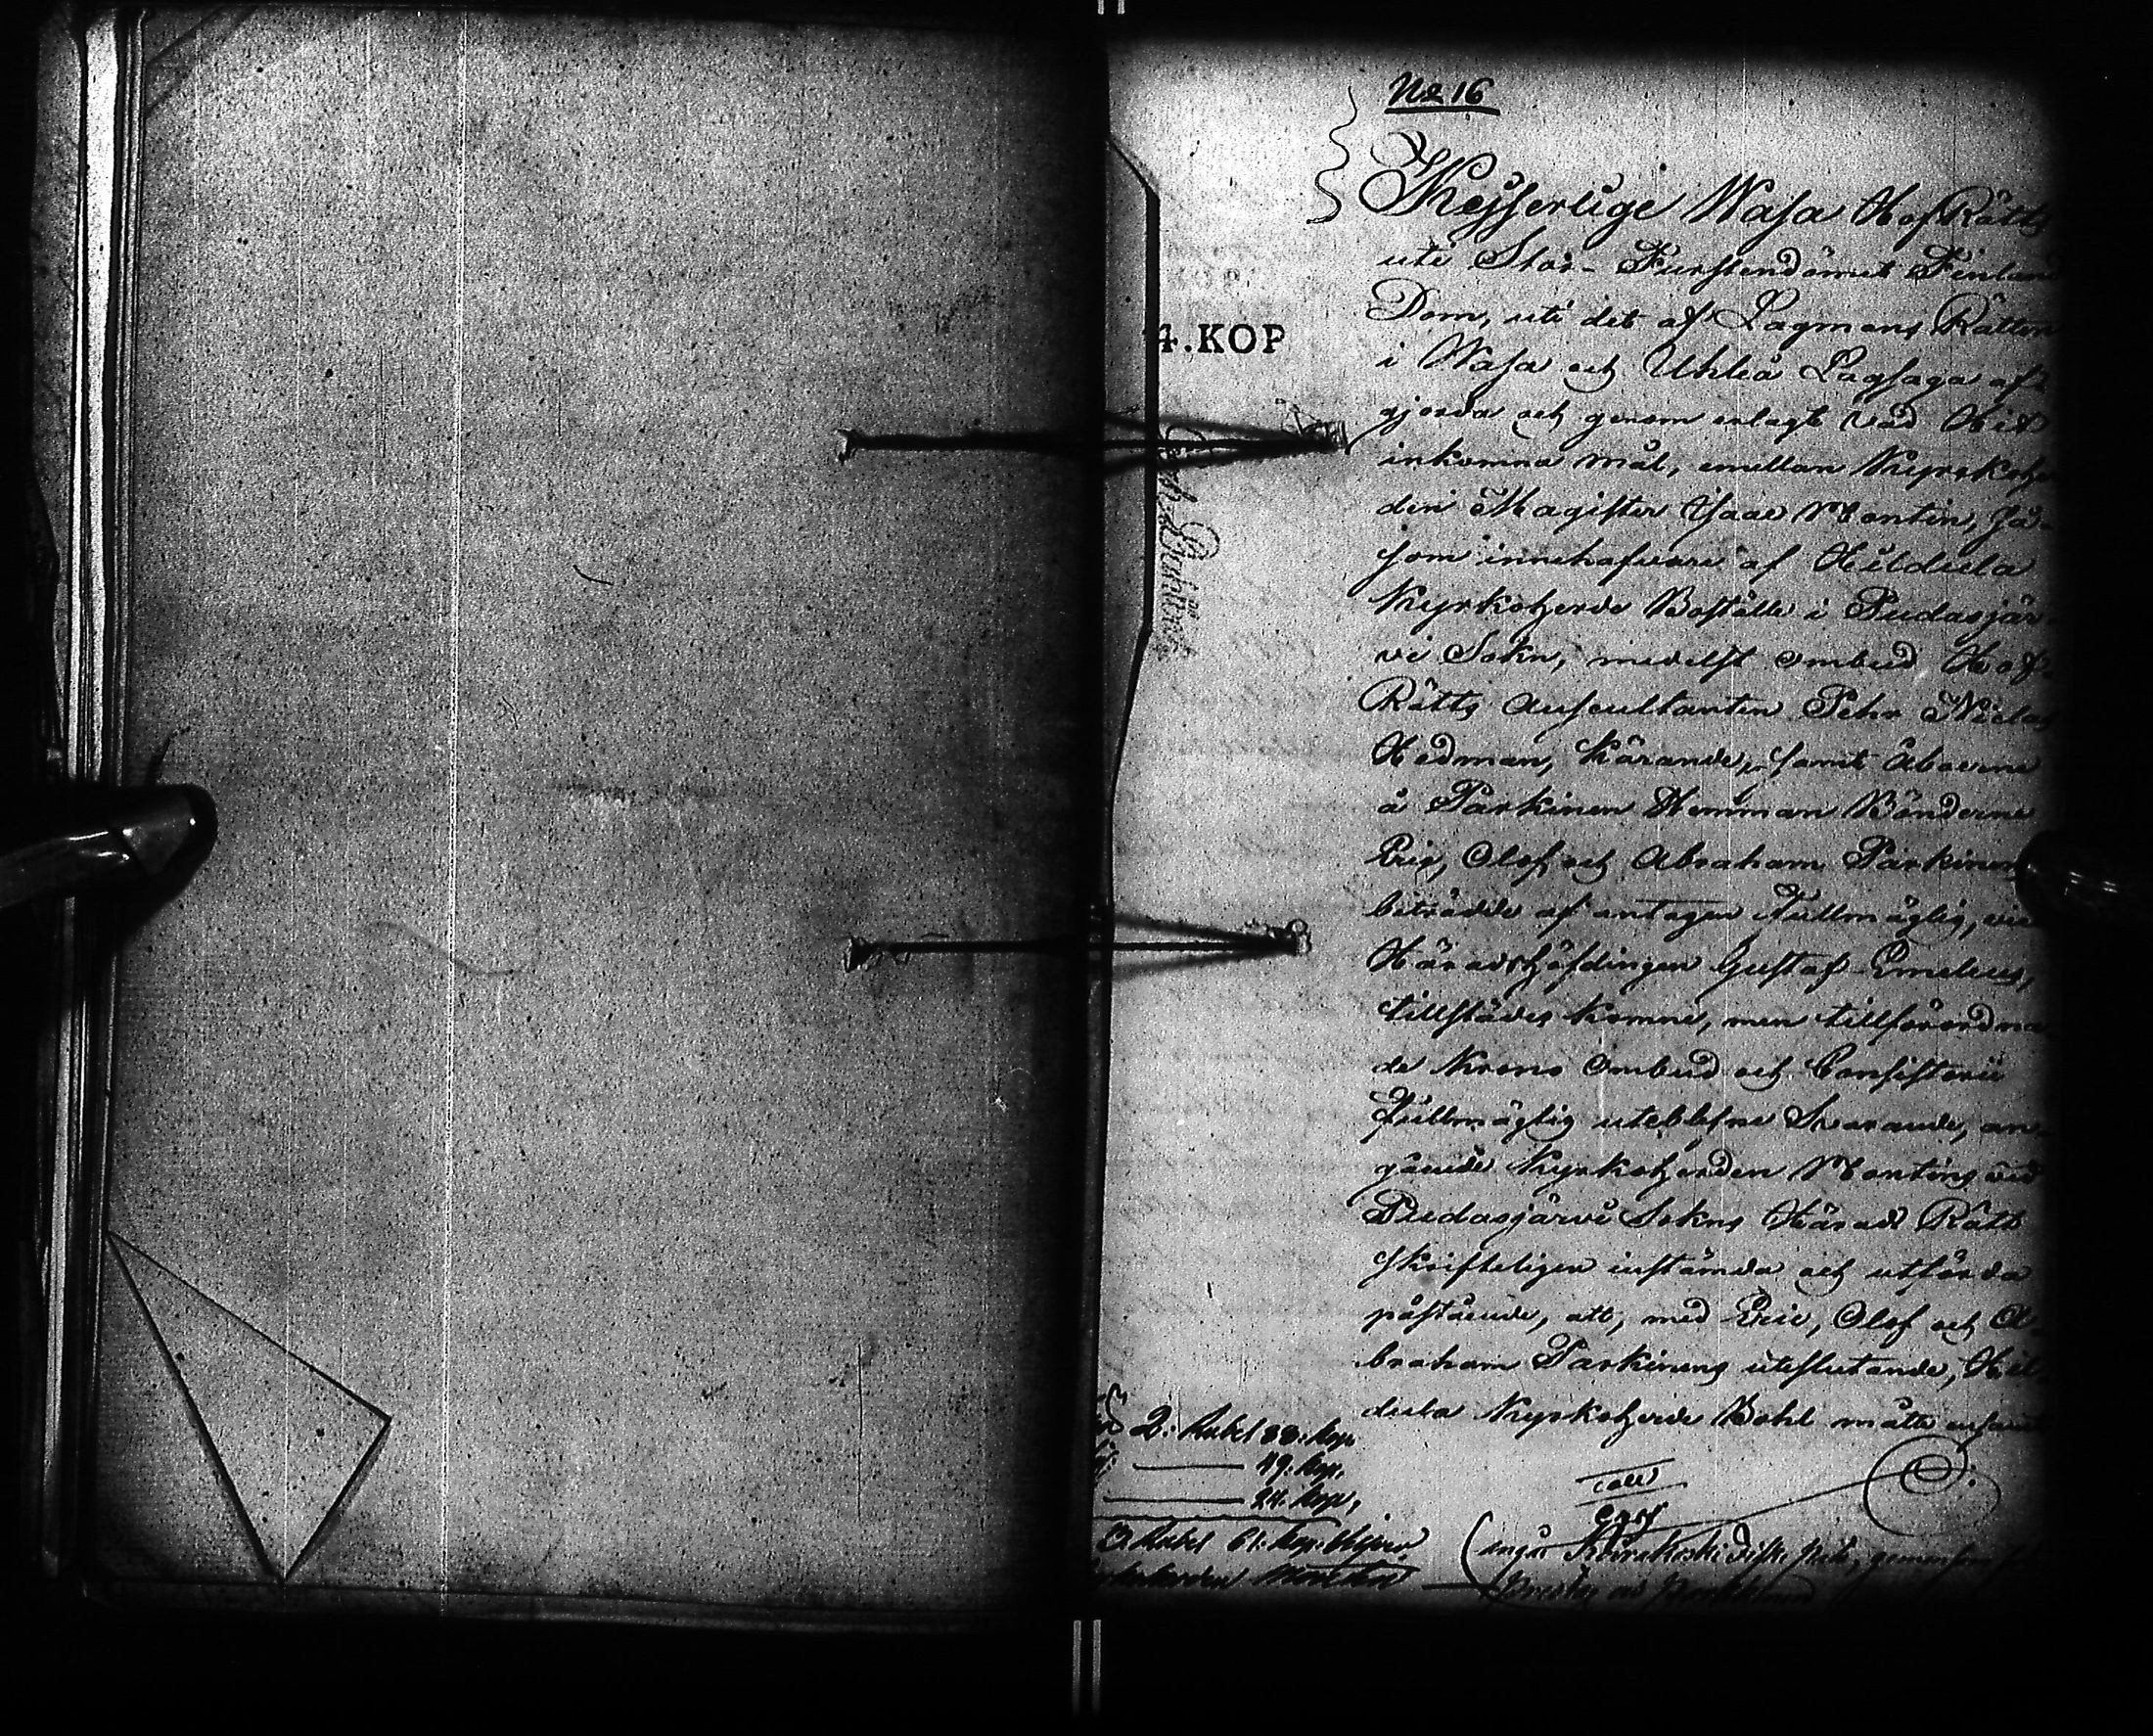 No 16
Kejserlige Wasa HofRätts
uti Stor-Furstendömet Finland
Dom, uti det af Lagmans Rätten
i Wasa och Uhleå Lagsaga af-
gjorda och genom erlagt vad Hit
4.KOP
inkomna mål, emellan Kyrkoher-
den Magister Isaac Montin, så-
som innehafvare af Hildula
Kyrkoherde Boställe i Pudasjär-
vi Sokn, medelst ombud Hof-
Rätts Auscultanten Pehr Niclas
Hedman, Kärande, samt Åboerne
å Parkinen Hemman Bönderne
Eric, Olof och Abraham Parkinen
biträdde af antagen Fullmägtig, vice
Häradshöfdingen Gustaf Emeleus,
tillstädes komne, men tillförordna
de Krono Ombud och Consistorii
Fullmägtig uteblefne Svarande, an-
gående Kyrkoherden Montins vid
Pudasjärvi Sokns Härads Rätt
skrifteligen instämda och utförda
påstående, att, med Eric, Olof och A-
braham Parkinens uteslutande, Hil-
dula Kyrkoherde Bohl måtte
2: Rubel 88: Kop.
49: Kop.
24: Kop,
3 Rubel 61: Kop: Silfver.
Montin